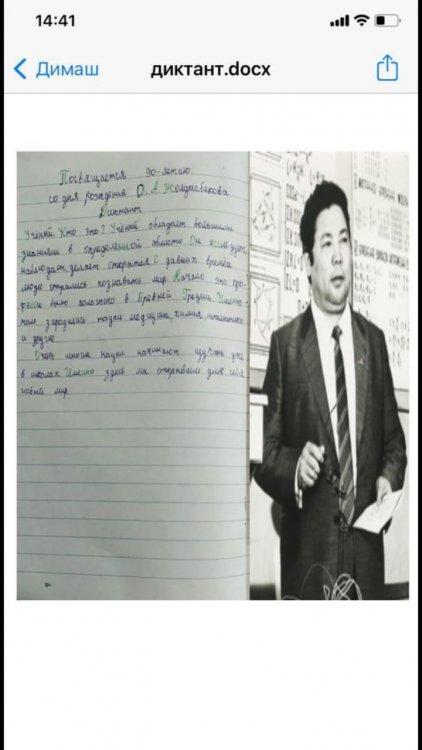 14:41
Димаш
диктант.docx
Посвящается 90-летию
со дня рождения Ө. А. Жолдасбекова
Диктант
Учёный. Кто это? Учёный обладает большими
знаниями в определенной области Он исследует,
наблюдает, делает открытия С давних времён
люди старались познавать мир Начало это про-
фесси было положено в Древней Греции. Именно
там зародились науки медицина, химия, математика
и другие
Очень многие науки начинают изучать уже
в школах Именно здесь мы открываем для себя
новый мир